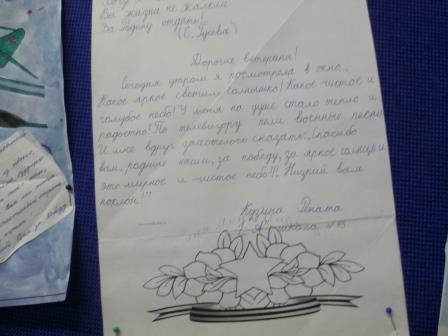 Вы жизни не жалели
За Родину отдали!
(С. Гусева)
Дорогие ветераны!
Сегодня утром я посмотрела в окно...
Какое яркое светило солнышко! Какое чистое и
голубое небо! У меня на душе стало тепло и
радостно! По телевизору пели военные песни
И мне вдруг захотелось сказать: „Спасибо
вам, родные наши, за победу, за яркое солнце и
это мирное и чистое небо!!! Низкий вам
поклон!"
Кузина Рената
школа №